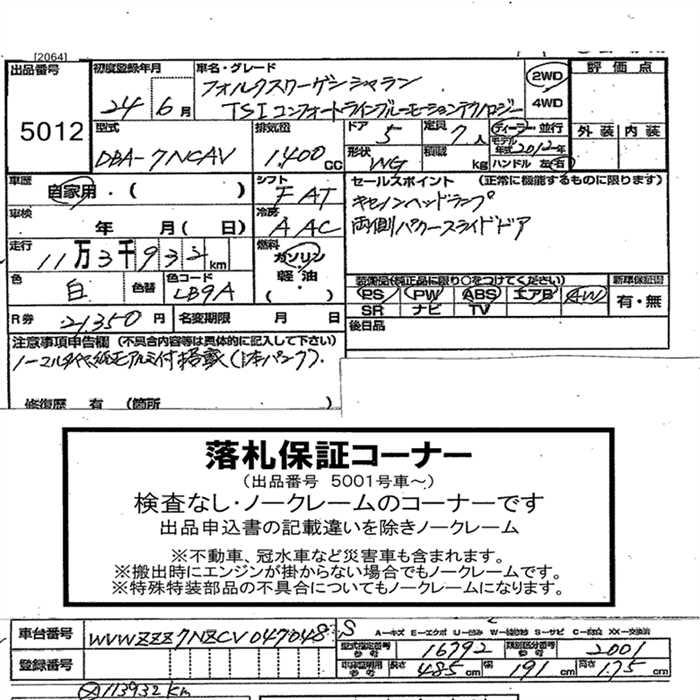 [2064]
出品番号 初度登録年月 車名・グレード
フォルクスワーゲン シャラン
24年6月 TSI コンフォートラインブルーモーションテクノロジー
2WD
4WD
評価点
外装 内装
5012
型式 排気量 ドア 定員 ディーラー・並行
DBA-7NCAV 1400cc 5 7人
モデル年式2012年
形状 WG 積載 kg ハンドル 左・右
車歴 自家用・( ) シフト FAT
セールスポイント (正常に機能するものに限ります)
キセノンヘッドランプ
両側パワースライドドア
車検 年 月( 日) 冷房 AAC
走行 11万3千932km 燃料 ガソリン
軽・油
( )
色 白 色替 色コード LB9A
装備品(純正品に限り○をつけてください) 新車保証書
PS PW ABS エアB AW
SR ナビ TV
有・無
R券 21350円 名変期限 月 日
後日品
注意事項申告欄 (不具合内容等は具体的に記入して下さい)
修復歴 有 (箇所 )
落札保証コーナー
(出品番号 5001号車~)
検査なし・ノークレームのコーナーです
出品申込書の記載違いを除きノークレーム
※不動車、冠水車など災害車も含まれます。
※搬出時にエンジンが掛からない場合でもノークレームです。
※特殊特装部品の不具合についてもノークレームになります。
車台番号 WVWZZZ7NZCV047048 S
型式指定番号 参考 16792 類別区分番号 参考 2001
登録番号
長さ 485cm 幅 191cm 高さ 175cm
113932km